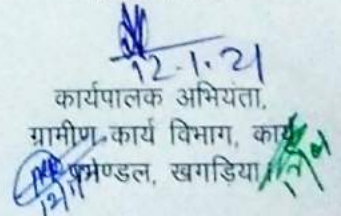 12-1-21
कार्यपालक अभियंता,
ग्रामीण कार्य विभाग, कार्य
प्रमण्डल, खगड़िया।